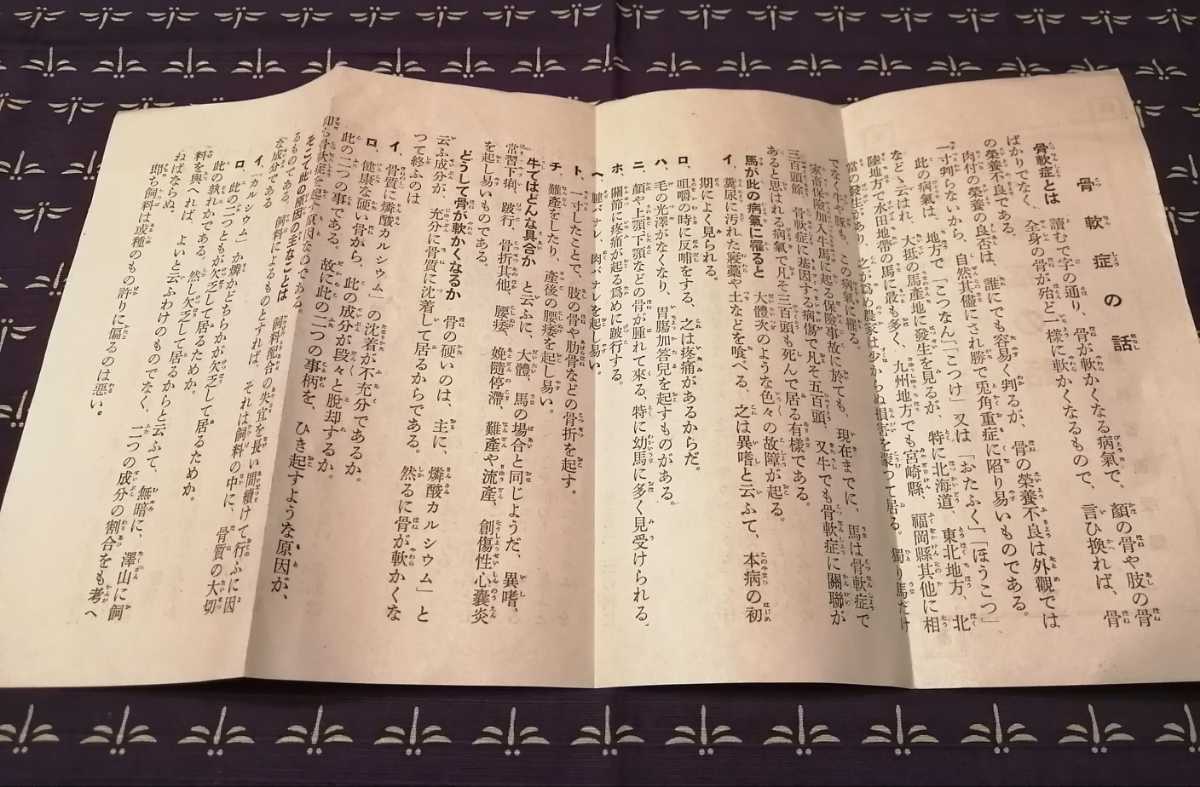 骨軟症の話
骨軟症とは 讀むで字の通り、骨が軟かくなる病氣で、顏の骨や肢の骨
ばかりでなく、全身の骨が殆ど一樣に軟かくなるもので、言ひ換れば、骨
の榮養不良である。
肉付の榮養の良否は、誰にでも容易く判るが、骨の榮養不良は外觀では
一寸判らないから、自然其儘にされ勝で兎角重症に陷り易いものである。
此の病氣は、地方で「こつなん」「こつけ」又は「おたふく」「ほうこつ」
などと、云はれ、大抵の馬產地に發生を見るが、特に北海道、東北地方、北
陸地方で水田地帶の馬に最も多く、九州地方でも宮崎縣、福岡縣其他に相
當の發生があり、之が爲め農家は少からぬ損害を蒙つて居る。獨り馬だけ
でなく牛や豚も、この病氣に罹る。
家畜保險加入牛馬に起る保險事故に於ても、現在までに、馬は骨軟症で
三百頭餘、骨軟症に基因する病傷で凡そ五百頭、又牛でも骨軟症に關聯が
あると思はれる病氣で凡そ三百頭も死んで居る有樣である。
馬が此の病氣に罹ると 大體次のような色々の故障が起る。
イ、糞尿に汚れた寢藁や土などを喰べる。之は異嗜と云ふて、本病の初
期によく見られる。
ロ、咀嚼の時に反哺をする。之は疼痛があるからだ。
ハ、毛の光澤がなくなり、胃腸加答兒を起すものがある。
ニ、顏や上頭、下頭などの骨が腫れて來る、特に幼馬に多く見受けられる。
ホ、關節に疼痛が起る爲めに跛行する。
ヘ、腱バナレ、肉バナレを起し易い。
ト、一寸したことで、肢の骨や肋骨などの骨折を起す。
チ、難產をしたり、產後の腰痿を起し易い。
牛ではどんな具合か と云ふに、大體、馬の場合と同じようだ、異嗜。
常習下痢、跛行、骨折其他、腰痿、娩隨停滯、難產や流產、創傷性心囊炎
を起し易いものである。
どうして骨が軟かくなるか 骨の硬いのは、主に、燐酸カルシウム」と
云ふ成分が、充分に骨質に沈着して居るからである。然るに骨が軟かくな
つて終ふのは
イ、骨質に燐酸カルシウム」の沈着が不充分であるか。
ロ、健康な硬い骨から、此の成分が段々と脫却するか。
此の二つの事である。故に此の二つの事柄を、ひき起すような原因が、
即ち骨軟症を起す原因なのである。
そこで此の原因の主なことは 飼料配合の失宜を長い間續けて行ふに因
るものである。飼料によるものとすれば、それは飼料の中に、骨質の大切
な成分である
イ、「カルシウム」か燐かどちらかが欠乏して居るためか。
ロ、此の二つともが欠乏して居るためか。
此の孰れかである。然し欠乏して居るからと云ふて、無暗に、澤山に飼
料を與へれば、よいと云ふわけのものでなく、二つの成分の割合をも考へ
ねばならぬ。
即ち飼料は或種のもの許りに偏るのは惡い。